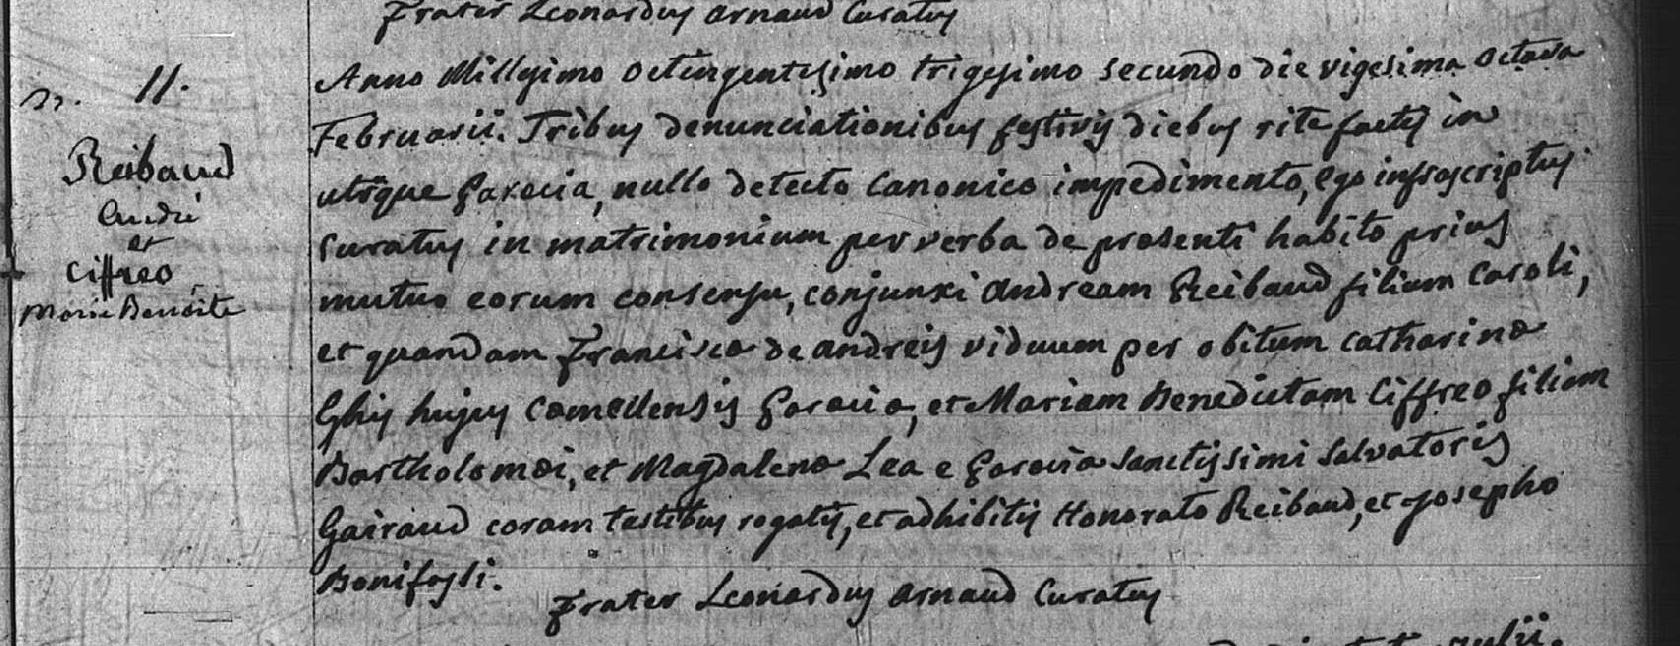 Frater Leonardus Arnaud Curatus
n. 11.
Reibaud
André
et
Ciffreo
Marie Benoite
Anno Millesimo octingentesimo trigesimo secundo die vigesima octava
Februarii. Tribus denunciationibus festivis diebus rite factis in
utrâque Parocia, nullo detecto Canonico impedimento, Ego infrascriptus
Curatus in matrimonium per verba de presenti habito prius
mutuo eorum consensu, conjunxi Andream Reibaud filium Caroli,
et quandam Francisca de andreis viduum per obitum Catharina
Ghis hujus Comedensis Parocia, et Mariam Benedictam Ciffreo filiam
Bartholomei, et Magdalena Lea e Parocia Sanctissimi Salvatoris
Gairaud coram testibus rogatis, et adhibitis Honorato Reibaud, et Josepho
Bonifassi.
Frater Leonardus Arnaud Curatus